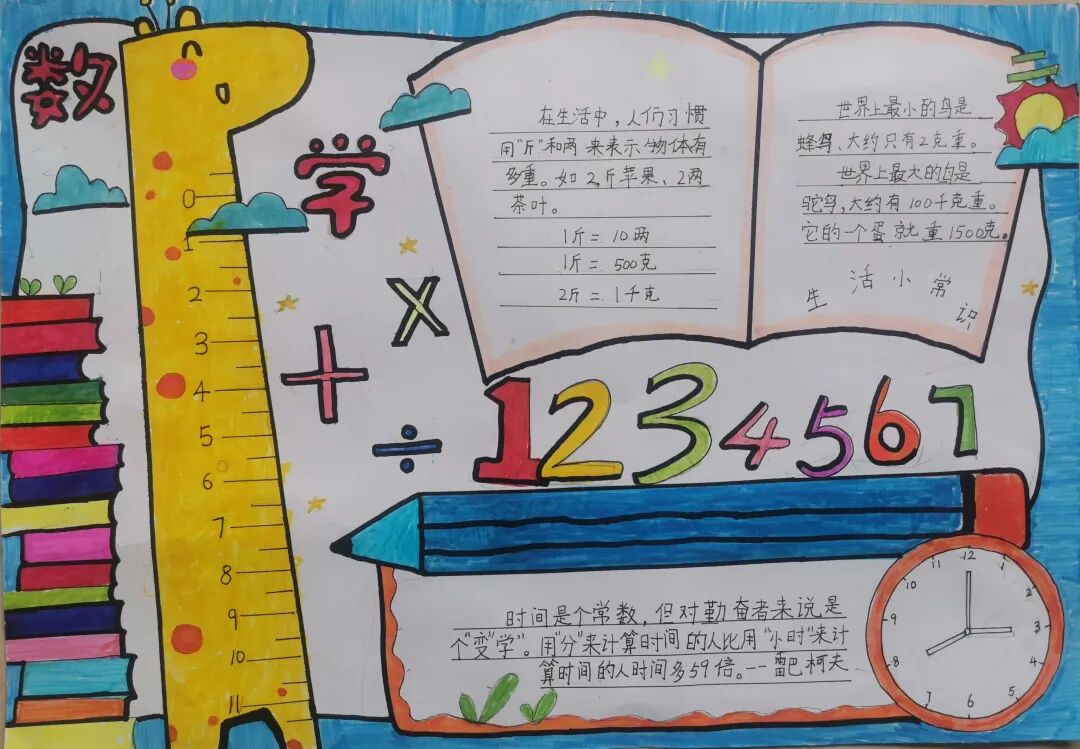 数
学
在生活中,人们习惯
用"斤"和两 来表示物体有
多重。如2斤苹果、2两
茶叶。
1斤 = 10两
1斤 = 500克
2斤 = 1千克
世界上最小的鸟是
蜂鸟、大约只有2克重。
世界上最大的鸟是
驼鸟,大约有100千克重。
它的一个蛋就重1500克。
生活小常识
0
1
2
3
4
5
6
7
8
9
10
11
+
×
÷
1234567
时间是个常数,但对勤奋者来说是
个"变"学"。用"分"来计算时间的人比用"小时"来计
算时间的人时间多59倍。--雷巴柯夫
12
1
2
3
4
5
6
7
8
9
10
11